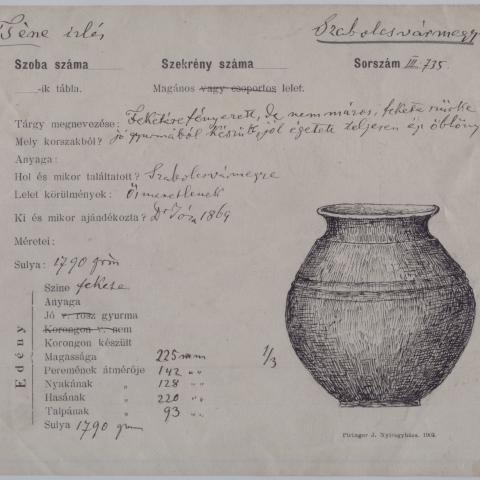 Téne izlés Szabolcsvármegy
Szoba száma Szekrény száma Sorszám III. 735.
-ik tábla. Magános vagy csoportos lelet.
Tárgy megnevezése: Feketére fényezett, de nem máros, fekete szürke
Mely korszakból? jó gyurmából készült, jól égetett teljesen ép öblöny
Anyaga:
Hol és mikor találtatott? Szabolcsvármegye
Lelet körülmények: Ösmeretlenek
Ki és mikor ajándékozta? Dr Jósa 1869
Méretei:
Sulya: 1790 grm
Edény
Szine fekete
Anyaga
Jó v. rosz gyurma
Korongon v. nem
Korongon készült
Magassága 225 mm
Peremének átmérője 142 " "
Nyakának " 128 " "
Hasának " 220 " "
Talpának " 93 " "
Sulya 1790 grm
1/3
Piringer J. Nyiregyháza. 1902.